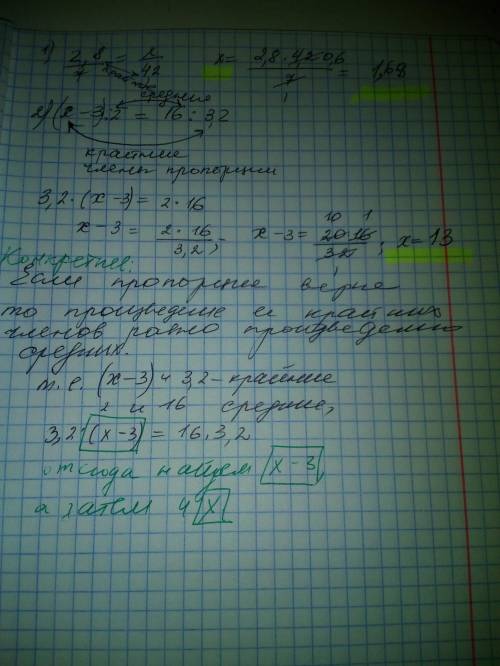 1) 2,8/7 = x/42 x = 2,8 · 4,2 0,6 / 7 = 1,68
средние
2) (x-3):2 = 16:3,2
крайние
члены пропорции
3,2 · (x-3) = 2 · 16
x-3 = 2 · 16 / 3,2 ; x-3 = 20 · 16 / 32 ; x = 13
10 1
1
Конкретнее:
Если пропорция верна
то произведение её крайних
членов равно произведению
средних.
т.е. (x-3) и 3,2 - крайние
2 и 16 средние,
3,2 · (x-3) = 16 · 3,2
отсюда найдем x-3,
а затем и x